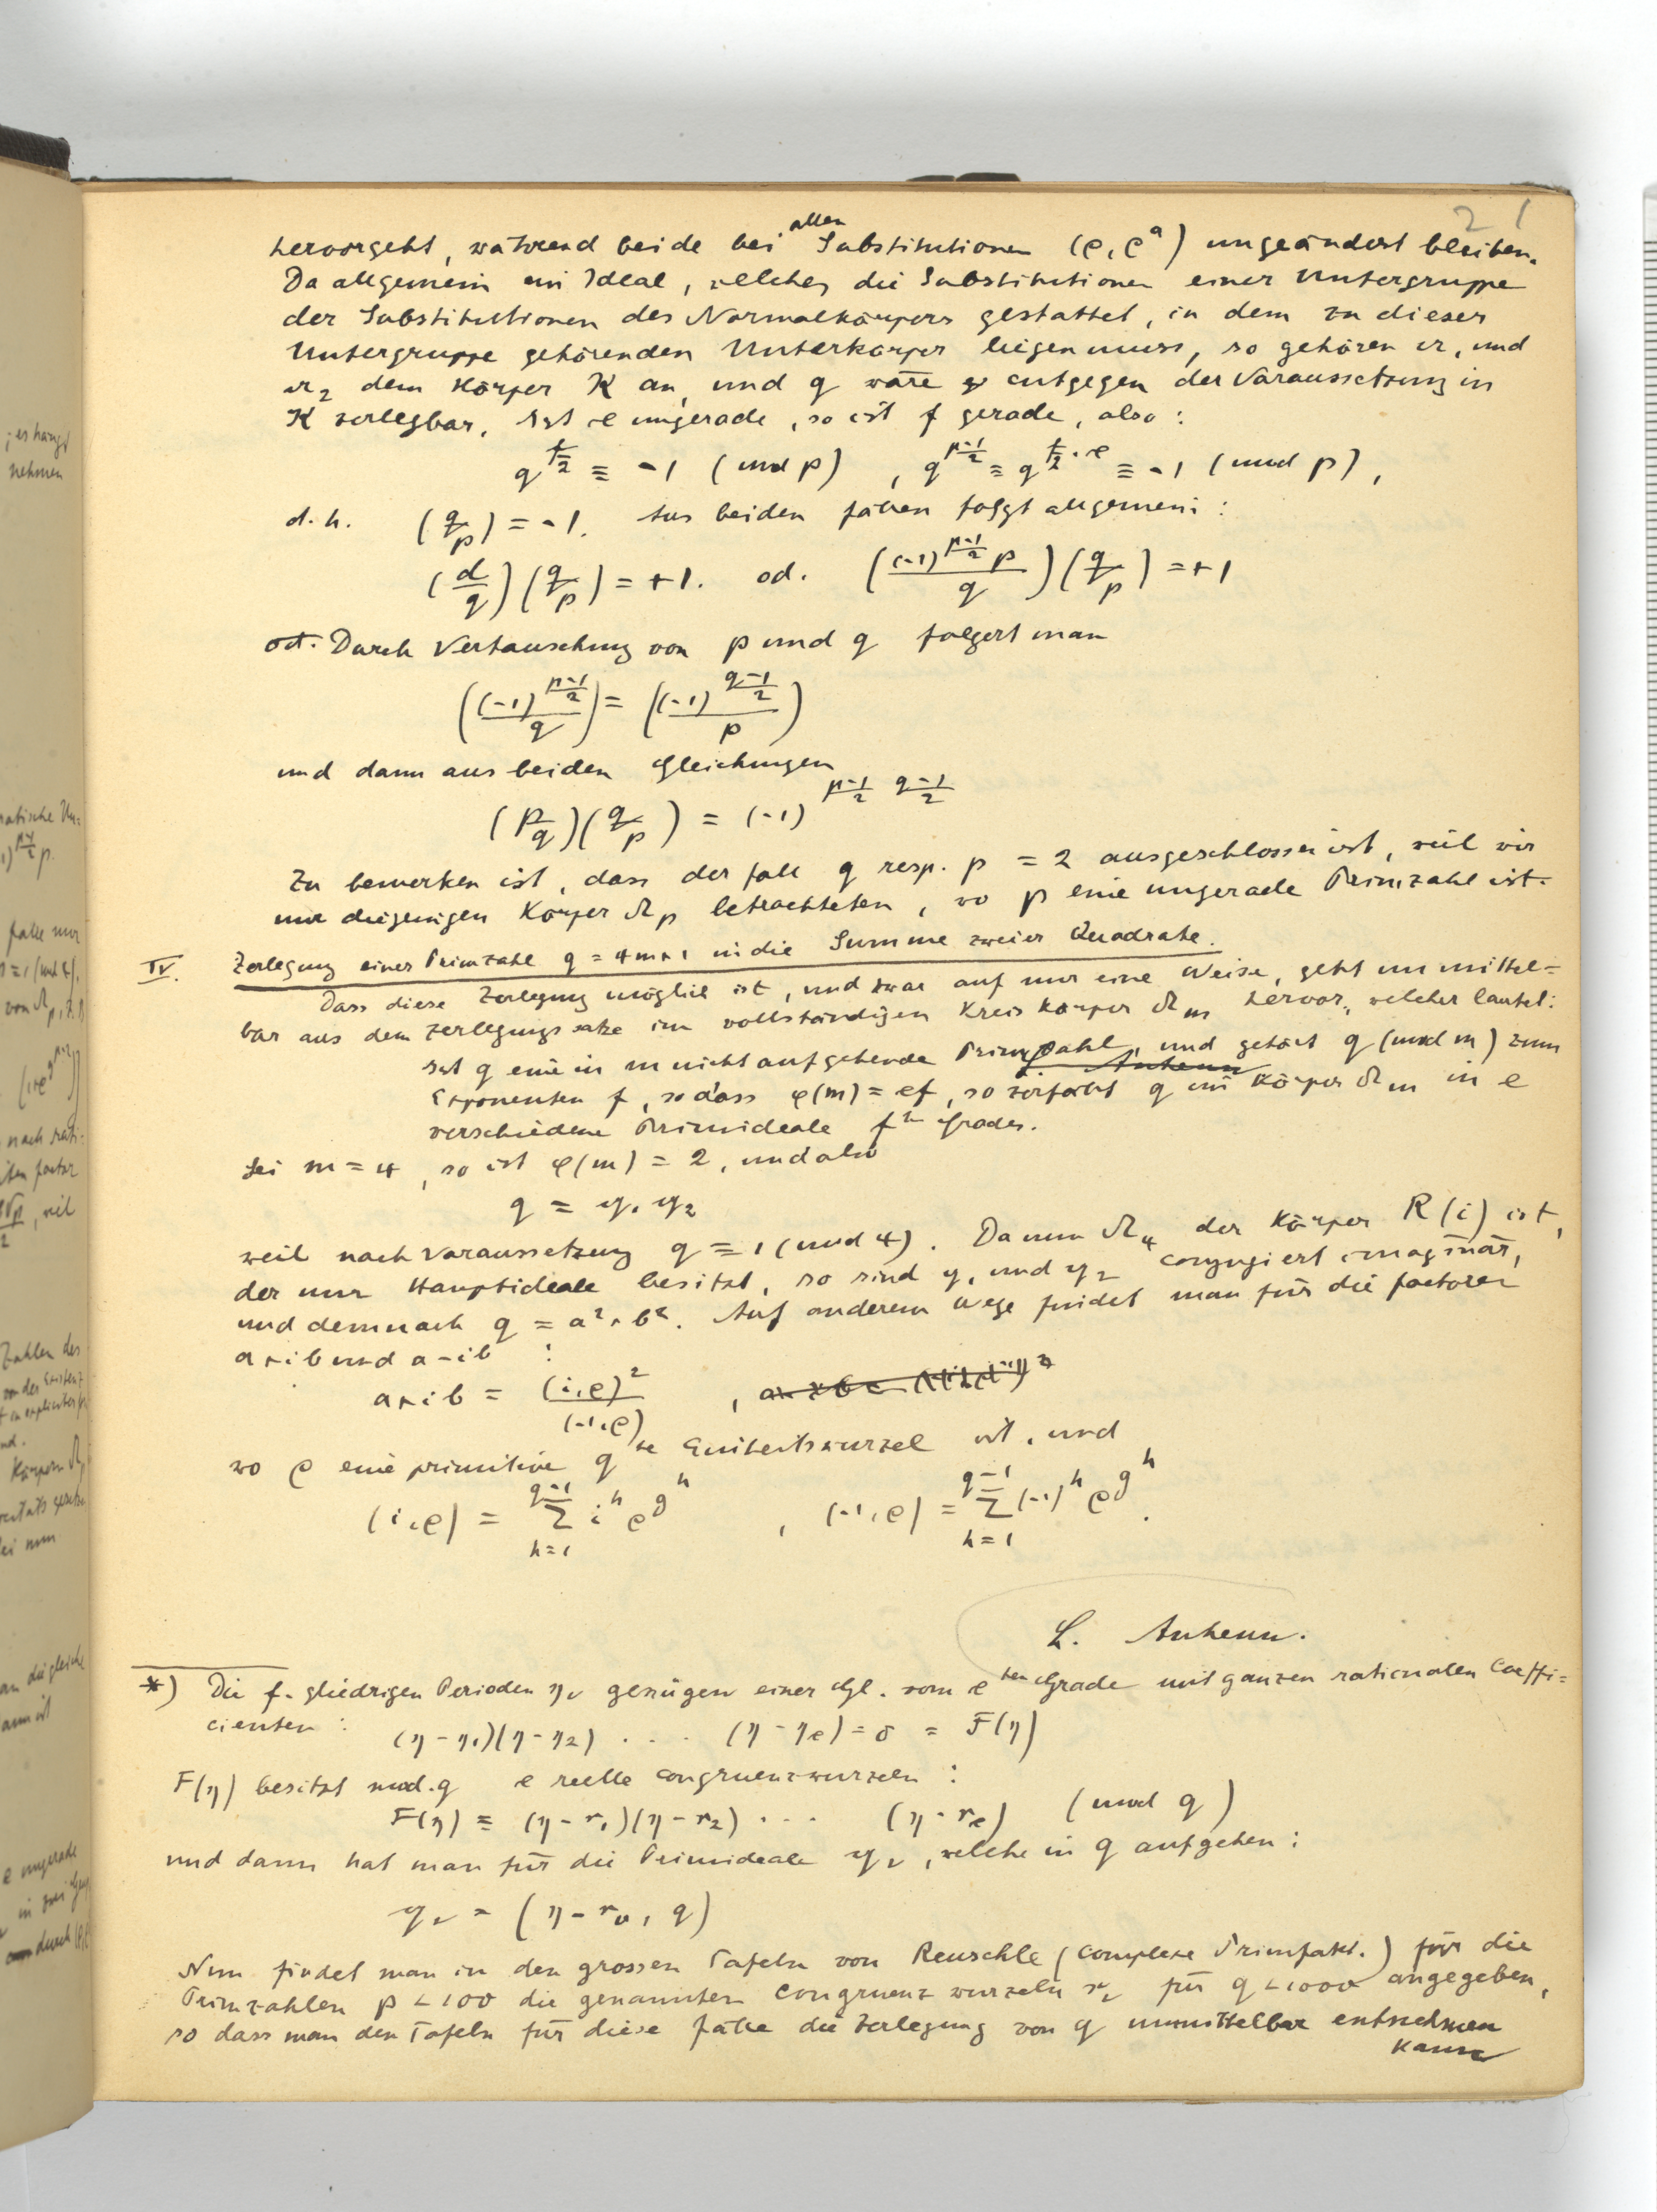 21
hervorgeht, während beide bei allen Substitutionen (ρ, ρ^a) ungeändert bleiben.
Da allgemein ein Ideal, welches die Substitutionen einer Untergruppe
der Substitutionen des Normalkörpers gestattet, in dem zu dieser
Untergruppe gehörenden Unterkörper liegen muss, so gehören α₁ und
α₂ dem Körper K an, und q wäre entgegen der Voraussetzung in
K zerlegbar. Ist e ungerade, so ist f gerade, also:
q^{f/2} ≡ -1 (mod p) , q^{(p-1)/2} ≡ q^{f/2 · e} ≡ -1 (mod p),
d. h. (q/p) = -1. Aus beiden Fällen folgt allgemein:
(d/q)(q/p) = +1. od. ((-1)^{(p-1)/2} p / q)(q/p) = +1
od. Durch Vertauschung von p und q folgert man
((-1)^{(p-1)/2} / q) = ((-1)^{(q-1)/2} / p)
und dann aus beiden Gleichungen
(p/q)(q/p) = (-1)^{(p-1)/2 (q-1)/2}
Zu bemerken ist, dass der Fall q resp. p = 2 ausgeschlossen ist, weil wir
nur diejenigen Körper Ω_p betrachteten, wo p eine ungerade Primzahl ist.
IV. Zerlegung einer Primzahl q = 4m+1 in die Summe zweier Quadrate.
Dass diese Zerlegung möglich ist, und zwar auf nur eine Weise, geht unmittel=
bar aus dem Zerlegungssatze im vollständigen Kreiskörper Ω_m hervor, welcher lautet:
Ist q eine in m nicht aufgehende Primzahl, und gehört q (mod m) zum
Exponenten f, sodass φ(m) = ef, so zerfällt q im Körper Ω_m in e
verschiedene Primideale f^{ten} Grades.
Sei m = 4, so ist φ(m) = 2, und also
q = 𝔮₁ 𝔮₂
weil nach Voraussetzung q ≡ 1 (mod 4). Da nun Ω₄ der Körper R(i) ist,
der nur Hauptideale besitzt, so sind 𝔮₁ und 𝔮₂ conjugiert imaginär,
und demnach q = a² + b². Auf anderem Wege findet man für die Factoren
a+ib und a-ib :
a+ib = (i,ρ)² / (-1,ρ) ,
wo ρ eine primitive q^{te} Einheitswurzel ist, und
(i,ρ) = Σ_{h=1}^{q-1} i^h ρ^{g^h} , (-1,ρ) = Σ_{h=1}^{q-1} (-1)^h ρ^{g^h}.
L. Anhenn.
*) Die f-gliedrigen Perioden η_ν genügen einer Gl. vom e^{ten} Grade mit ganzen rationalen Coeffi=
cienten : (η-η₁)(η-η₂) . . . (η-η_e) = 0 = F(η)
F(η) besitzt mod. q e reelle Congruenzwurzeln :
F(η) ≡ (η-r₁)(η-r₂) . . . (η-r_e) (mod q)
und dann hat man für die Primideale 𝔮_ν, welche in q aufgehen :
𝔮_ν = (η-r_ν, q)
Nun findet man in den grossen Tafeln von Reuschle (Complexe Primfakt.) für die
Primzahlen p < 100 die genannten Congruenzwurzeln r_ν für q < 1000 angegeben,
so dass man den Tafeln für diese Fälle die Zerlegung von q unmittelbar entnehmen
kann